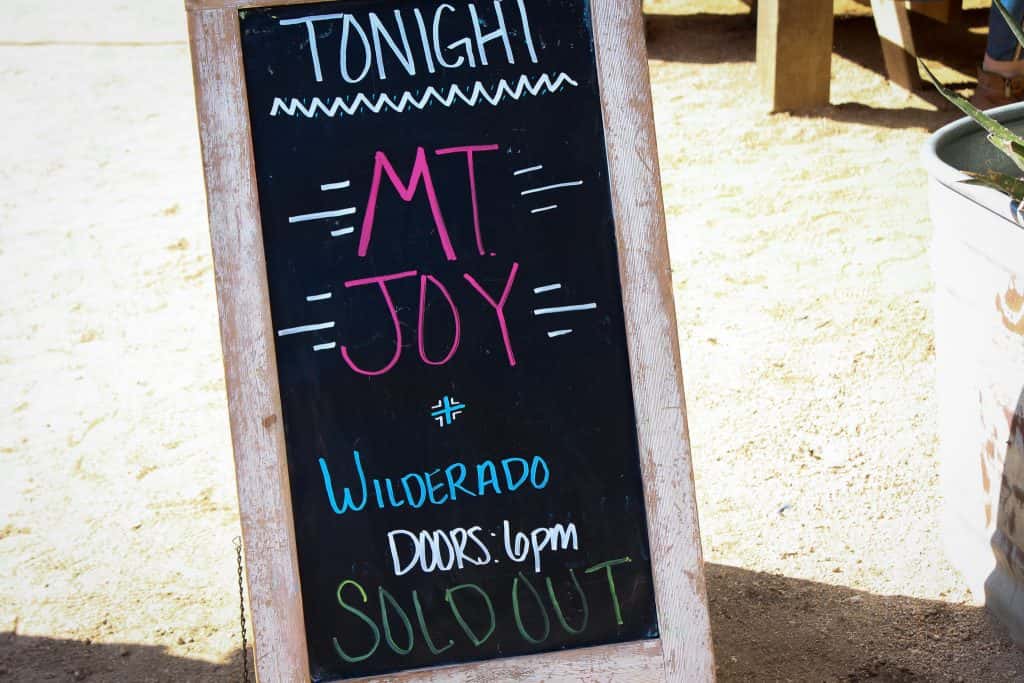 TONIGHT
MT.
JOY
+
WILDERADO
DOORS: 6pm
SOLD OUT